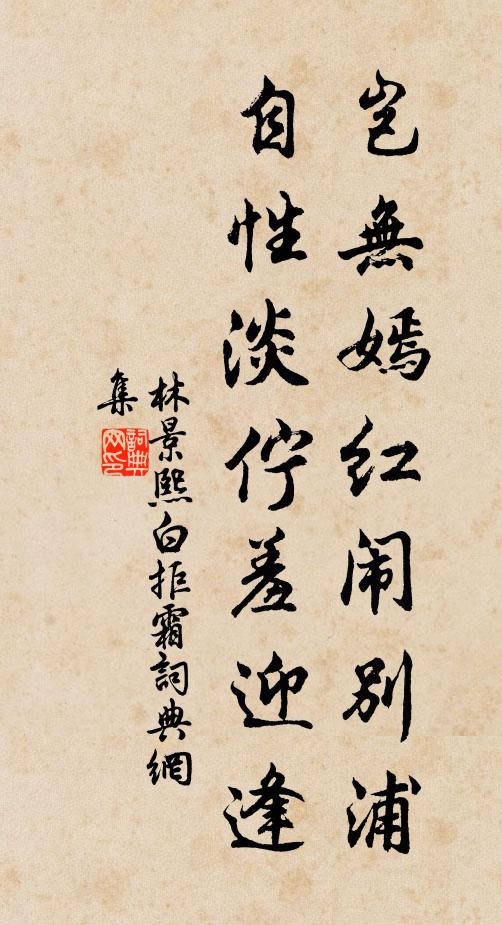 岂無嫣红闹别浦
自性淡佇羞迎逢
林景熙白拒霜詞典網
集
詞典網印